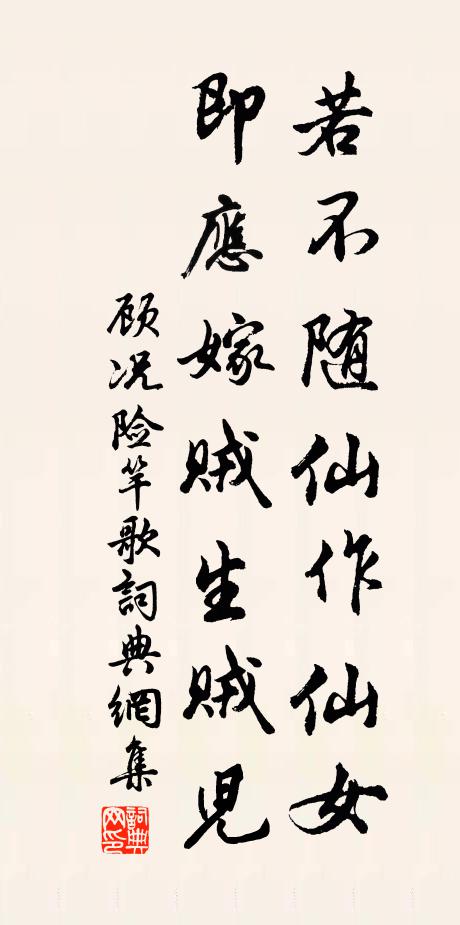 若不随仙作仙女
即應嫁贼生贼兒
顾况险竿歌詞典網集
詞典网印